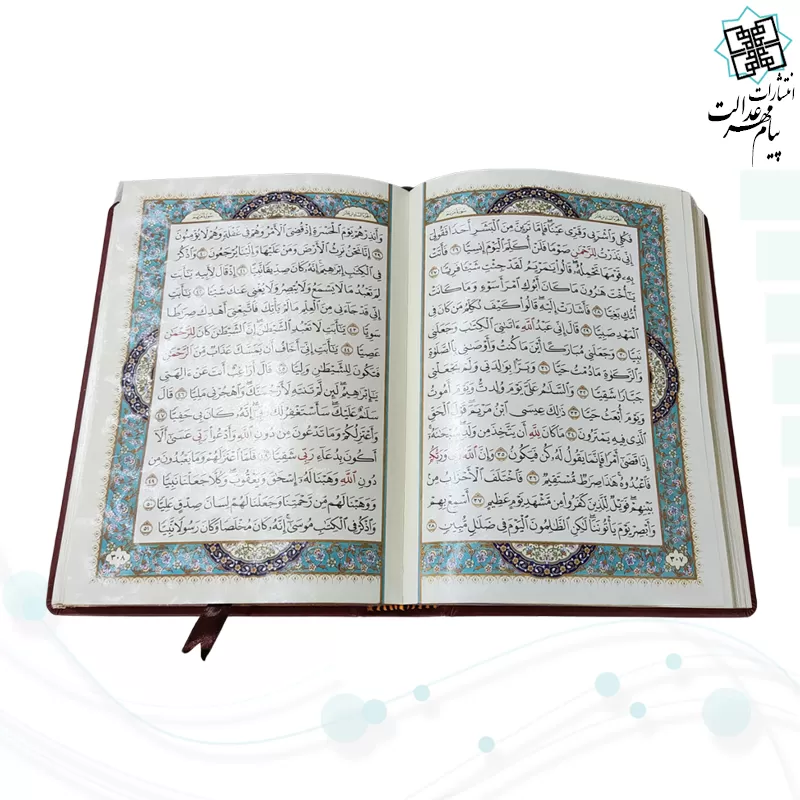 انتشارات
پیام مهر عدالت
فَكُلِي وَاشْرَبِي وَقَرِّي عَيْنًا ۖ فَإِمَّا تَرَيِنَّ مِنَ الْبَشَرِ أَحَدًا فَقُولِي
إِنِّي نَذَرْتُ لِلرَّحْمَٰنِ صَوْمًا فَلَنْ أُكَلِّمَ الْيَوْمَ إِنْسِيًّا ٢٦ فَأَتَتْ
بِهِ قَوْمَهَا تَحْمِلُهُ ۖ قَالُوا يَٰمَرْيَمُ لَقَدْ جِئْتِ شَيْئًا فَرِيًّا ٢٧
يَٰٓأُخْتَ هَٰرُونَ مَا كَانَ أَبُوكِ امْرَأَ سَوْءٍ وَمَا كَانَتْ
أُمُّكِ بَغِيًّا ٢٨ فَأَشَارَتْ إِلَيْهِ ۖ قَالُوا كَيْفَ نُكَلِّمُ مَنْ كَانَ فِي
الْمَهْدِ صَبِيًّا ٢٩ قَالَ إِنِّي عَبْدُ اللَّهِ ءَاتَىٰنِيَ الْكِتَٰبَ وَجَعَلَنِي
نَبِيًّا ٣٠ وَجَعَلَنِي مُبَارَكًا أَيْنَ مَا كُنْتُ وَأَوْصَٰنِي بِالصَّلَوٰةِ
وَالزَّكَوٰةِ مَا دُمْتُ حَيًّا ٣١ وَبَرًّا بِوَٰلِدَتِي وَلَمْ يَجْعَلْنِي
جَبَّارًا شَقِيًّا ٣٢ وَالسَّلَٰمُ عَلَيَّ يَوْمَ وُلِدْتُ وَيَوْمَ أَمُوتُ
وَيَوْمَ أُبْعَثُ حَيًّا ٣٣ ذَٰلِكَ عِيسَى ابْنُ مَرْيَمَ ۚ قَوْلَ الْحَقِّ
الَّذِي فِيهِ يَمْتَرُونَ ٣٤ مَا كَانَ لِلَّهِ أَنْ يَتَّخِذَ مِنْ وَلَدٍ ۖ سُبْحَٰنَهُ ۚ
إِذَا قَضَىٰ أَمْرًا فَإِنَّمَا يَقُولُ لَهُ كُنْ فَيَكُونُ ٣٥ وَإِنَّ اللَّهَ رَبِّي وَرَبُّكُمْ
فَاعْبُدُوهُ ۚ هَٰذَا صِرَٰطٌ مُسْتَقِيمٌ ٣٦ فَاخْتَلَفَ الْأَحْزَابُ مِنْ
بَيْنِهِمْ ۖ فَوَيْلٌ لِلَّذِينَ كَفَرُوا مِنْ مَشْهَدِ يَوْمٍ عَظِيمٍ ٣٧ أَسْمِعْ بِهِمْ
وَأَبْصِرْ يَوْمَ يَأْتُونَنَا ۖ لَٰكِنِ الظَّٰلِمُونَ الْيَوْمَ فِي ضَلَٰلٍ مُبِينٍ ٣٨
٣٠٧
وَأَنْذِرْهُمْ يَوْمَ الْحَسْرَةِ إِذْ قُضِيَ الْأَمْرُ وَهُمْ فِي غَفْلَةٍ وَهُمْ لَا يُؤْمِنُونَ
٣٩ إِنَّا نَحْنُ نَرِثُ الْأَرْضَ وَمَنْ عَلَيْهَا وَإِلَيْنَا يُرْجَعُونَ ٤٠ وَاذْكُرْ
فِي الْكِتَٰبِ إِبْرَٰهِيمَ ۚ إِنَّهُ كَانَ صِدِّيقًا نَبِيًّا ٤١ إِذْ قَالَ لِأَبِيهِ يَٰٓأَبَتِ
لِمَ تَعْبُدُ مَا لَا يَسْمَعُ وَلَا يُبْصِرُ وَلَا يُغْنِي عَنْكَ شَيْئًا ٤٢ يَٰٓأَبَتِ
إِنِّي قَدْ جَاءَنِي مِنَ الْعِلْمِ مَا لَمْ يَأْتِكَ فَاتَّبِعْنِي أَهْدِكَ صِرَٰطًا
سَوِيًّا ٤٣ يَٰٓأَبَتِ لَا تَعْبُدِ الشَّيْطَٰنَ ۖ إِنَّ الشَّيْطَٰنَ كَانَ لِلرَّحْمَٰنِ
عَصِيًّا ٤٤ يَٰٓأَبَتِ إِنِّي أَخَافُ أَنْ يَمَسَّكَ عَذَابٌ مِنَ الرَّحْمَٰنِ
فَتَكُونَ لِلشَّيْطَٰنِ وَلِيًّا ٤٥ قَالَ أَرَاغِبٌ أَنْتَ عَنْ ءَالِهَتِي
يَٰٓإِبْرَٰهِيمُ ۖ لَئِنْ لَمْ تَنْتَهِ لَأَرْجُمَنَّكَ ۖ وَاهْجُرْنِي مَلِيًّا ٤٦ قَالَ
سَلَٰمٌ عَلَيْكَ ۖ سَأَسْتَغْفِرُ لَكَ رَبِّي ۖ إِنَّهُ كَانَ بِي حَفِيًّا ٤٧
وَأَعْتَزِلُكُمْ وَمَا تَدْعُونَ مِنْ دُونِ اللَّهِ وَأَدْعُوا رَبِّي عَسَىٰ أَلَّا
أَكُونَ بِدُعَاءِ رَبِّي شَقِيًّا ٤٨ فَلَمَّا اعْتَزَلَهُمْ وَمَا يَعْبُدُونَ مِنْ
دُونِ اللَّهِ وَهَبْنَا لَهُ إِسْحَٰقَ وَيَعْقُوبَ ۖ وَكُلًّا جَعَلْنَا نَبِيًّا ٤٩
وَوَهَبْنَا لَهُمْ مِنْ رَحْمَتِنَا وَجَعَلْنَا لَهُمْ لِسَانَ صِدْقٍ عَلِيًّا ٥٠
وَاذْكُرْ فِي الْكِتَٰبِ مُوسَىٰ ۚ إِنَّهُ كَانَ مُخْلَصًا وَكَانَ رَسُولًا نَبِيًّا ٥١
٣٠٨